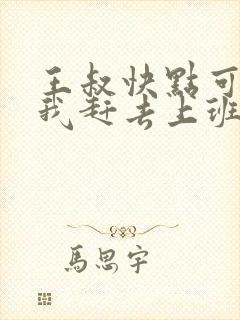 王叔快點可
我赶去上班
馬思宇